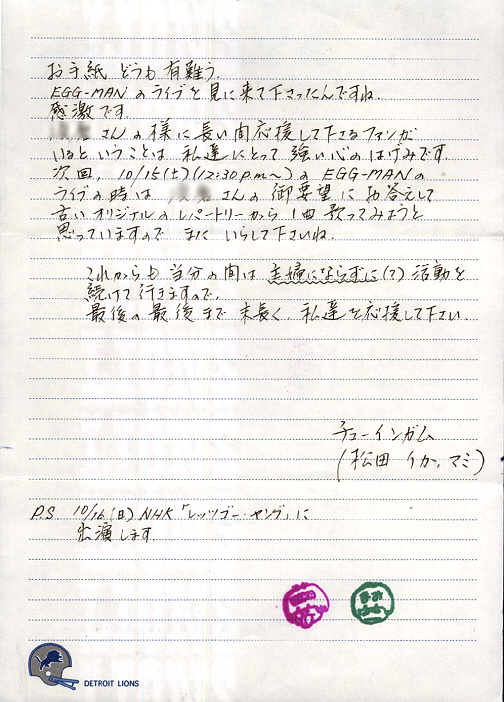 お手紙 どうも 有難う.
EGG-MAN のライブを見に来て下さったんですね.
感激です.
さんの様に長い間応援して下さるファンが
いるということは 私達にとって 強い心のはげみです.
次回, 10/15(土)(12:30p.m~)の EGG-MANの
ライブの時は さんの御要望にお答えして
古いオリジナルのレパートリーから 1曲歌ってみようと
思っていますので また いらして下さいね.
これからも 当分の間は 主婦にならずに(?) 活動を
続けて行きますので,
最後の最後まで 末長く 私達を応援して下さい.
チューインガム
(松田 イカ, マミ)
P.S. 10/16(日) NHK「レッツゴー・ヤング」に
出演します.
DETROIT LIONS